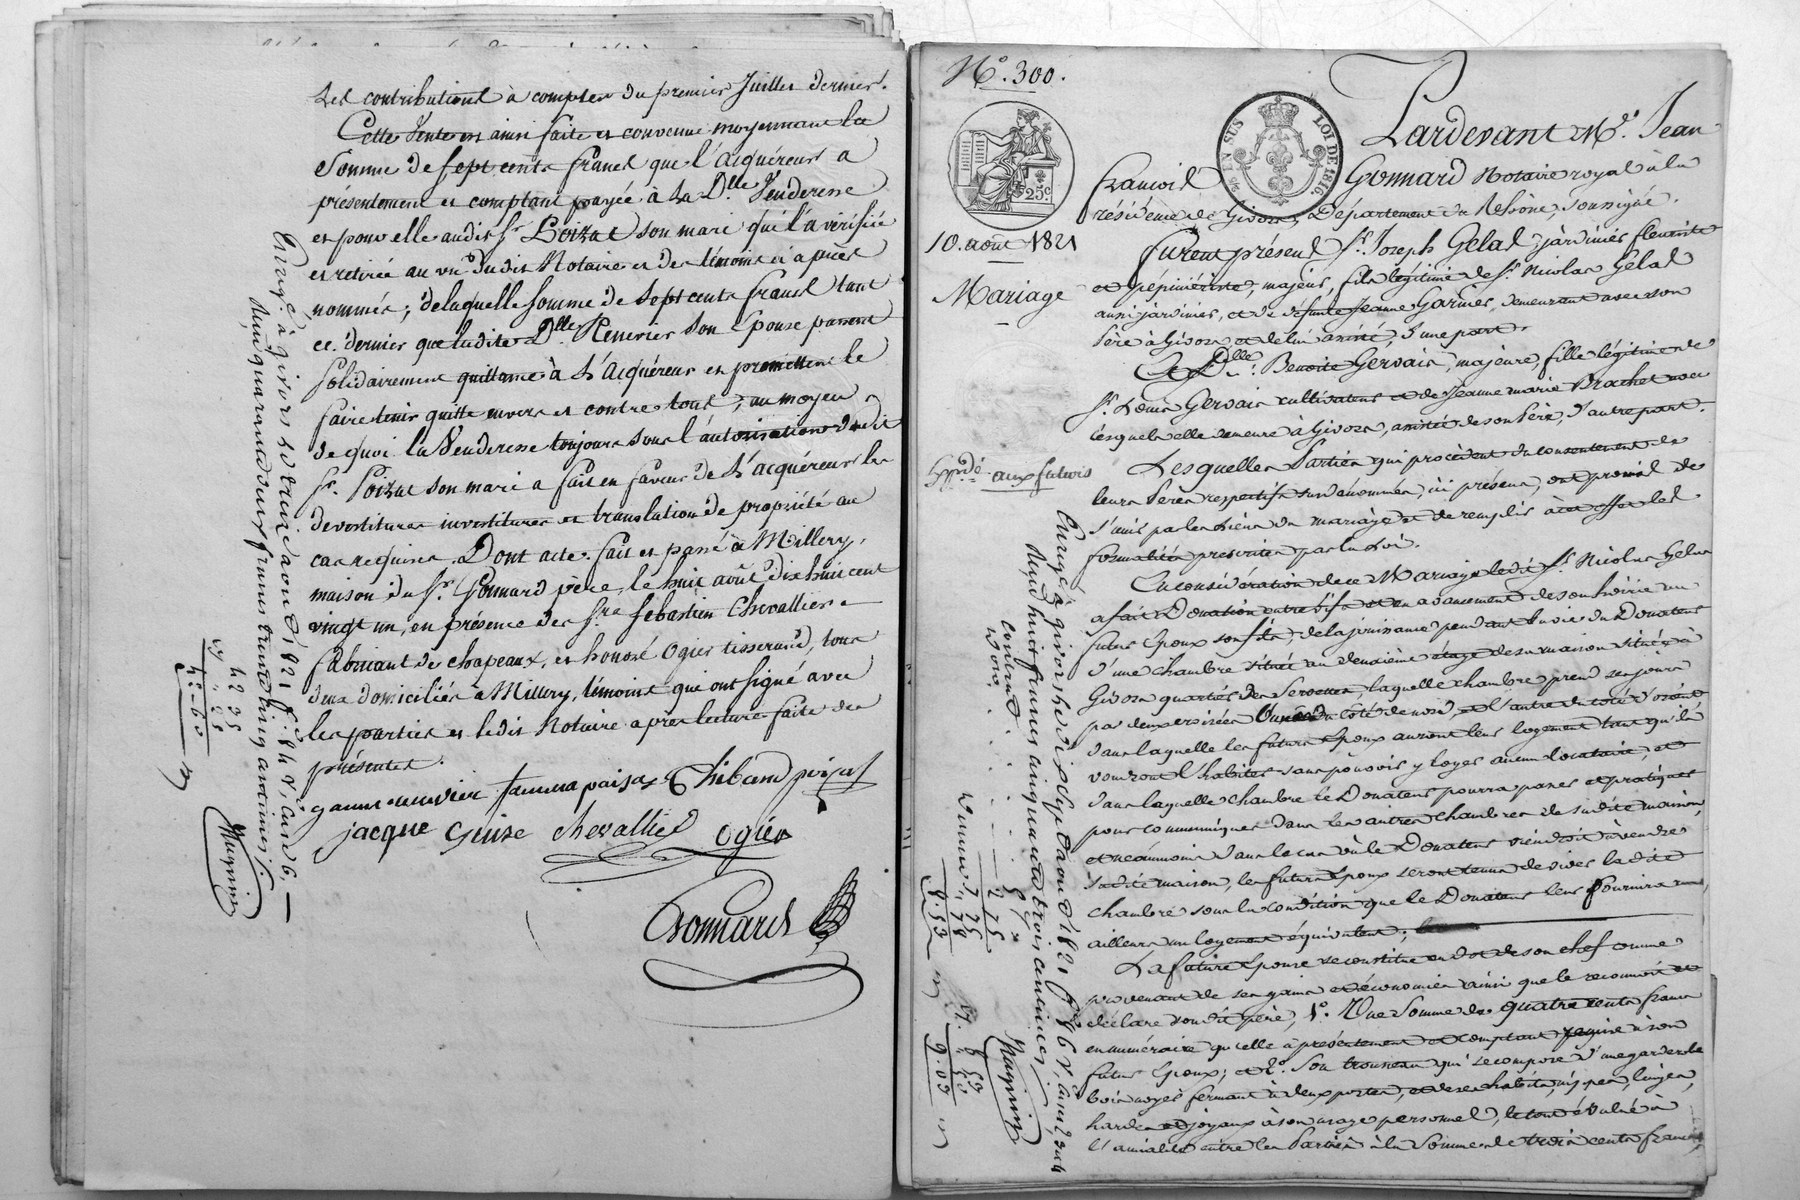 Les contributions à compter du premier Juillet dernier.
Cette Vente est ainsi faite et convenue moyennant la
Somme de sept cents francs que l'acquéreur a
présentement et comptant payée à La Dlle Venderesse
et pour elle audit Sr Poizat son mari qui l'a vérifiée
et retirée au vu dudit Notaire et des témoins ci après
nommés; de laquelle somme de Sept cents francs tant
ce dernier que ladite Dlle Renevier Son Epouse passent
Solidairement quittance à L'Acquéreur et promettent le
faire tenir quitte envers et contre tous, au moyen
de quoi la Venderesse toujours sous l'autorisation dudit
Sr. Poizat son mari a fait en faveur de L'acquéreur les
devestitures investitures et translation de propriété au
cas requises. Dont acte. fait et passé à Millery,
maison du Sr. Gonnard père, le huit août dix huit cent
vingt un, en présence des Srs Sébastien Chevallier
fabricant de chapeaux, et honoré Ogier tisserand, tous
deux domiciliés à Millery, témoins qui ont signé avec
les parties et ledit Notaire après lecture faite des
présentes.
jacque Guize Chevallier Ogier
Gonnard
Enregé à givors le treize août 1821 fo 84 Vo Case 6.
Reçu quarante deux francs trente cinq centimes
42 35
No. 300.
25c
EN SUS
LOI DE 1816.
10. août 1821
Mariage
Expdé aux futurs
Pardevant Me. Jean
François Gonnard Notaire royal à la
résidence de Givors, Département du Rhône, soussigné.
Furent présens Sr. Joseph Gelas, jardinier fleuriste
et pépiniériste, majeur, fils légitime de Sr. Nicolas Gelas
aussi jardinier, et de défunte Jeanne Garnier, demeurant avec son
Père à Givors et de lui assisté, d'une part.
Et Dlle. Benoite Gervais, majeure, fille légitime de
Sr. Louis Gervais cultivateur et de Jeanne marie Brachet avec
lesquels elle demeure à Givors, assistée de son Père, d'autre part.
Lesquelles Parties qui procèdent du consentement de
leurs Pères respectifs sus dénommés, ici présens, ont promis de
s'unir par les liens du mariage et de remplir à cet effet les
formalités prescrites par la Loi.
En considération de ce Mariage ledit Sr. Nicolas Gelas
a fait Donation entre vifs et en avancement de son hoirie au
futur Epoux son fils, de la jouissance pendant la vie du Donateur
d'une chambre située au deuxième étage de sa maison située à
Givors quartier des Seroettes, laquelle chambre prend ses jours
par deux croisées l'une du côté de nord, et l'autre du côté d'orient
dans laquelle les futurs Epoux auront leur logement tant qu'ils
voudront l'habiter sans pouvoir y loger aucun locataire, et
dans laquelle chambre le Donateur pourra passer et pratiquer
pour communiquer dans les autres chambres de sa dite maison,
et néanmoins dans le cas où le Donateur viendroit à vendre
sadite maison, les futurs Epoux seront tenus de vider ladite
chambre sous la condition que le Donateur leur fournira
ailleurs un logement équivalent;
La future Epouse se constitue en dot de son chef comme
provenant de ses gains et économies ainsi que le reconnoit et
déclare son dit père, 1o. Une Somme de quatre cents francs
en numéraire qu'elle a présentement et comptant remise à son
futur Epoux; et 2o. Son trousseau qui se compose d'une garderobe
bois noyer fermant à deux portes, et de ses habits, nippes, linges,
hardes et joyaux à son usage personnel, le tout évalué à
l'amiable entre les Parties à la Somme de trois cents francs,
Enregé à givors le dix sept août 1821 fo 86 Vo
Reçu huit francs cinquante trois centimes
8.53
9.03